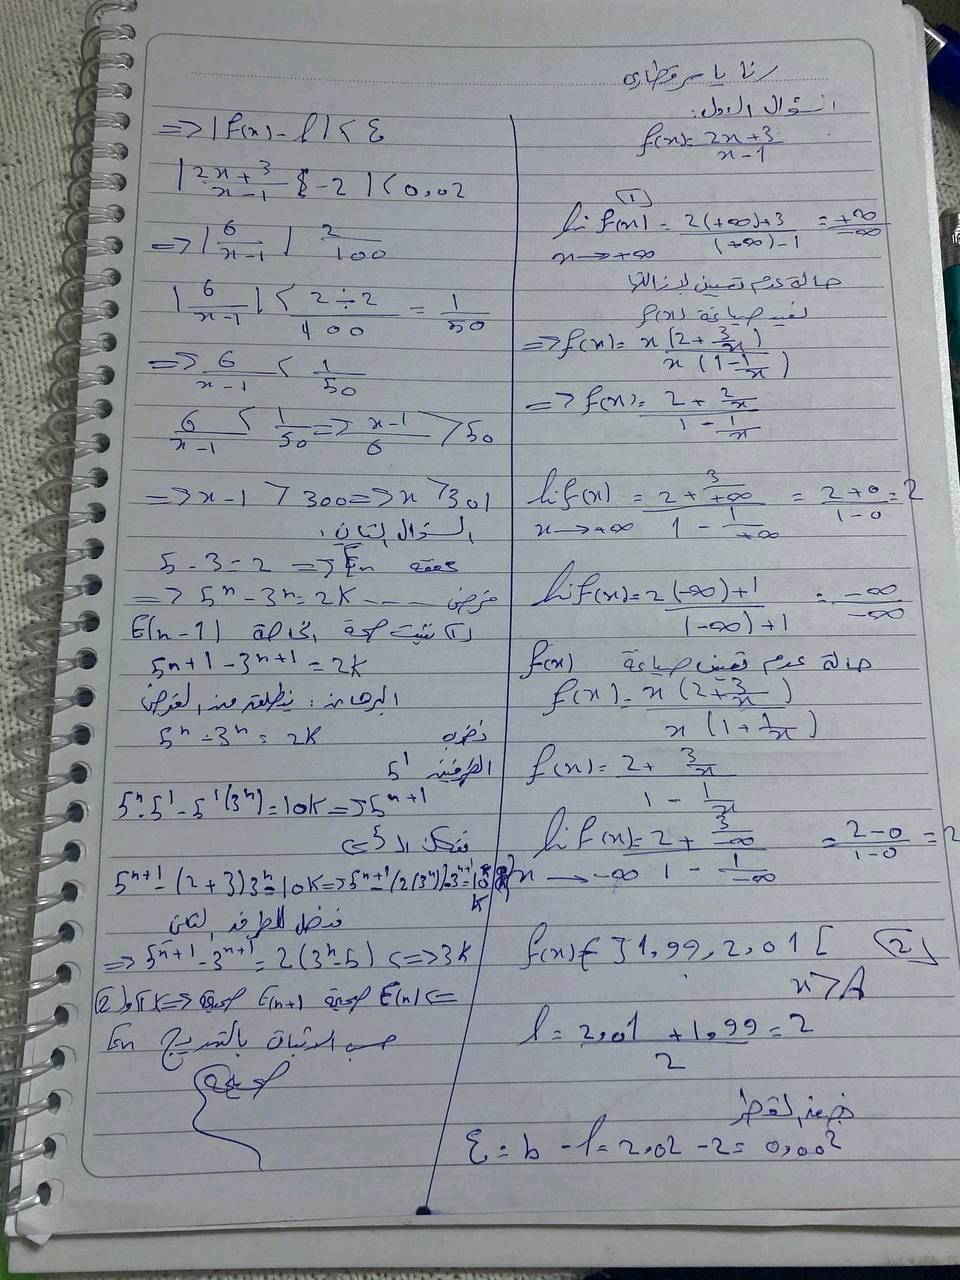 السؤال الاول:
f(x)= 2x+3 / x-1
①
lim f(x) = 2(+∞)+3 / (+∞)-1 = +∞ / -∞
x→+∞
حالة عدم تعيين لازالتها
نعيد صياغة f(x)
=> f(x)= x(2+3/x) / x(1-1/x)
=> f(x)= 2+2/x / 1-1/x
lim f(x) = 2+3/+∞ / 1-1/+∞ = 2+0 / 1-0 = 2
x→+∞
lim f(x)= 2(-∞)+1 / (-∞)+1 = -∞ / -∞
حالة عدم تعيين صياغة f(x)
f(x)= x(2+3/x) / x(1+1/x)
f(x)= 2+3/x / 1-1/x
lim f(x)= 2+3/-∞ / 1-1/-∞ = 2-0 / 1-0 = 2
x→-∞
f(x)∈ ]1,99, 2,01[ ②
x>A
l = 2,01+1,99 / 2 = 2
ε = b - l = 2,02 - 2 = 0,002
=> |f(x) - l| < ε
|2x+3 / x-1 - 2| < 0,02
=> |6 / x-1| 2 / 100
|6 / x-1| < 2÷2 / 100 = 1 / 50
=> 6 / x-1 < 1 / 50
6 / x-1 < 1 / 50 => x-1 / 6 > 50
=> x-1 > 300 => x > 301
السؤال الثاني:
5 - 3 = 2 => En محققة
=> 5ⁿ - 3ⁿ = 2K ---- فرض
نثبت صحة E(n-1)
5ⁿ⁺¹ - 3ⁿ⁺¹ = 2K
البرهان: ننطلق من الفرض
5ⁿ - 3ⁿ = 2K نضرب
الطرفين 5¹
5ⁿ·5¹ - 5¹(3ⁿ) = 10K => 5ⁿ⁺¹
نفكك ال 5 <=
5ⁿ⁺¹ - (2+3)3ⁿ = 10K => 5ⁿ⁺¹ - (2(3ⁿ)) - 3ⁿ⁺¹ = 10
K
=> 5ⁿ⁺¹ - 3ⁿ⁺¹ = 2(3ⁿ - 5) <=> 3K
<= E(n) صحيحة E(n+1) صحيحة
حسب الاثبات بالتدريج En
صحيحة